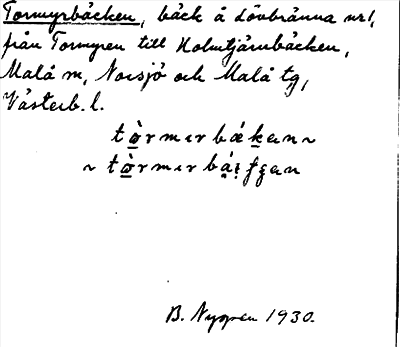 Tormyrbäcken, bäck å Lövbränna nr 1,
från Tormyren till Holmtjärnbäcken,
Malå sn, Norsjö och Malå tg,
Västerb. l.
tòrmırbákan ~
~ tòrmır
B. Nygren 1930.